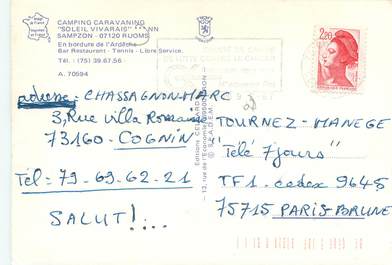 CAMPING CARAVANING
"SOLEIL VIVARAIS" NN
SAMPZON - 07120 RUOMS
En bordure de l'Ardèche
Bar Restaurant - Tennis - Libre Service.
Tél. : (75) 39.67.56
A. 70594
2,20
adresse = CHASSAGNON MARC
3, Rue villa Romaine
73160 - COGNIN
Tél = 79-69-62-21
SALUT!...
TOURNEZ - MANEGE
"Télé 7 jours"
TF1 - cedex 9645
75715 PARIS-BRUNE